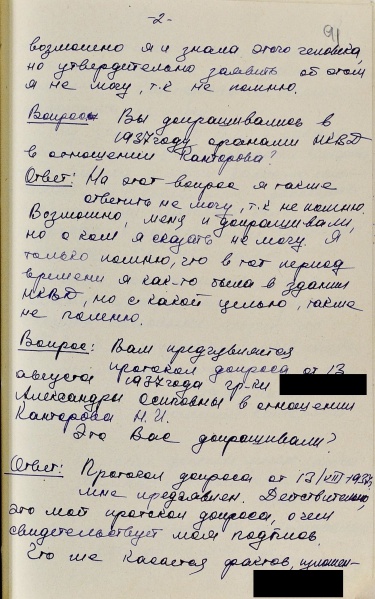 -2-
91
возможно я и знала этого человека,
но утвердительно заявить об этом
я не могу, т.к не помню.
Вопрос: Вы допрашивались в
1937 году органами НКВД
в отношении Канторова?
Ответ: На этот вопрос я также
ответить не могу, т.к не помню.
Возможно, меня и допрашивали,
но о ком я сказать не могу. Я
только помню, что в тот период
времени я как-то была в здании
НКВД, но с какой целью, также
не помню.
Вопрос: Вам предъявляется
протокол допроса от 13
августа 1937 года гр-ки
Александры Осиповны в отношении
Канторова Н.И.
Это Вас допрашивали?
Ответ: Протокол допроса от 13/VIII-1937г
мне предъявлен. Действительно,
это мой протокол допроса, о чем
свидетельствует моя подпись.
Что же касается фактов, изложен-